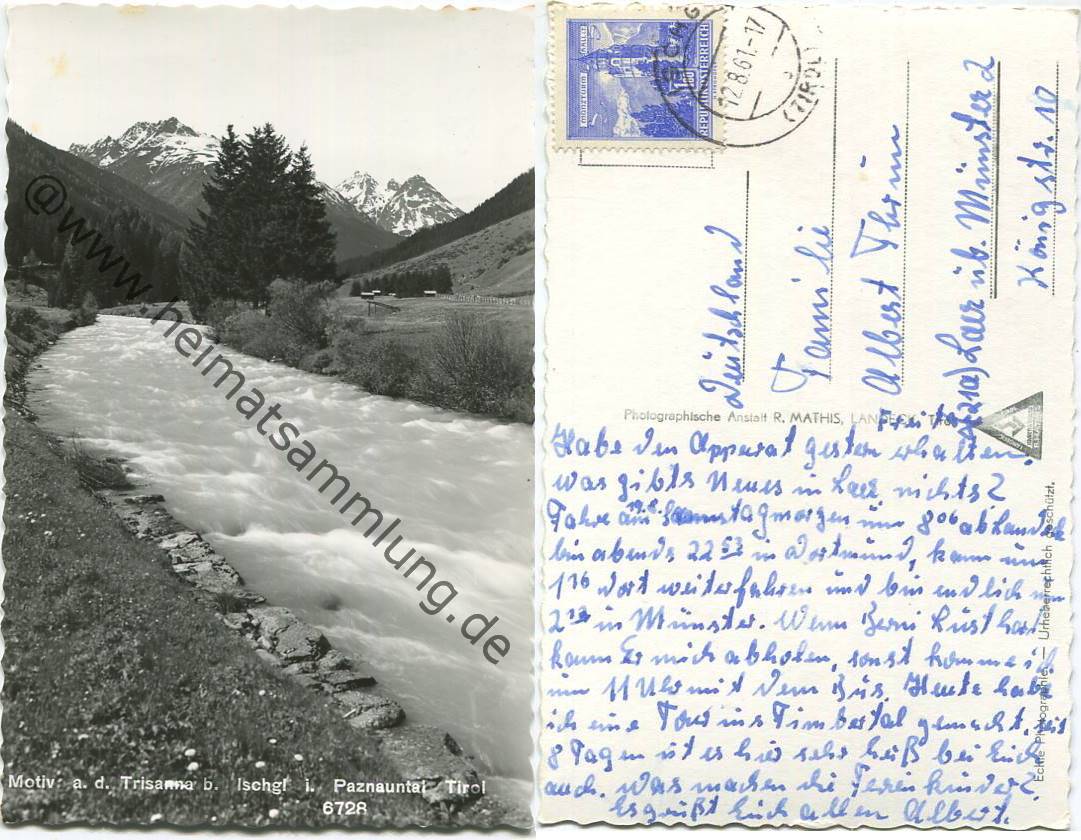 @www.heimatsammlung.de
Motiv a. d. Trisanna b. Ischgl i. Paznauntal Tirol
6728
REPUBLIK ÖSTERREICH
1.80
MÜNZTURM HALL i.T.
ISCHGL
12.8.61.-17
(TIROL)
Deutschland
Familie
Albert Thrim
(4401a) Laer üb. Münster 2
Königstr. 10
Photographische Anstalt R. MATHIS, LANDECK, Tirol
Echte Photographie — Urheberrechtlich geschützt.
Freitag
Habe den Apparat gestern erhalten,
was gibts Neues in Laer, nichts?
Fahre am 19.8. Samstagmorgen um 8 06 ab Landeck
bin abends 22 53 in Dortmund, kann um
1 16 dort weiterfahren und bin endlich um
2 13 in Münster. Wenn Berni Lust hat
kann Er mich abholen, sonst komme ich
um 11 Uhr mit dem Bus. Heute habe
ich eine Tour ins Fimbertal gemacht, seit
8 Tagen ist es hier sehr heiß bei Euch
auch. was machen die Ferienkinder?
Es grüßt Euch allen Albert.